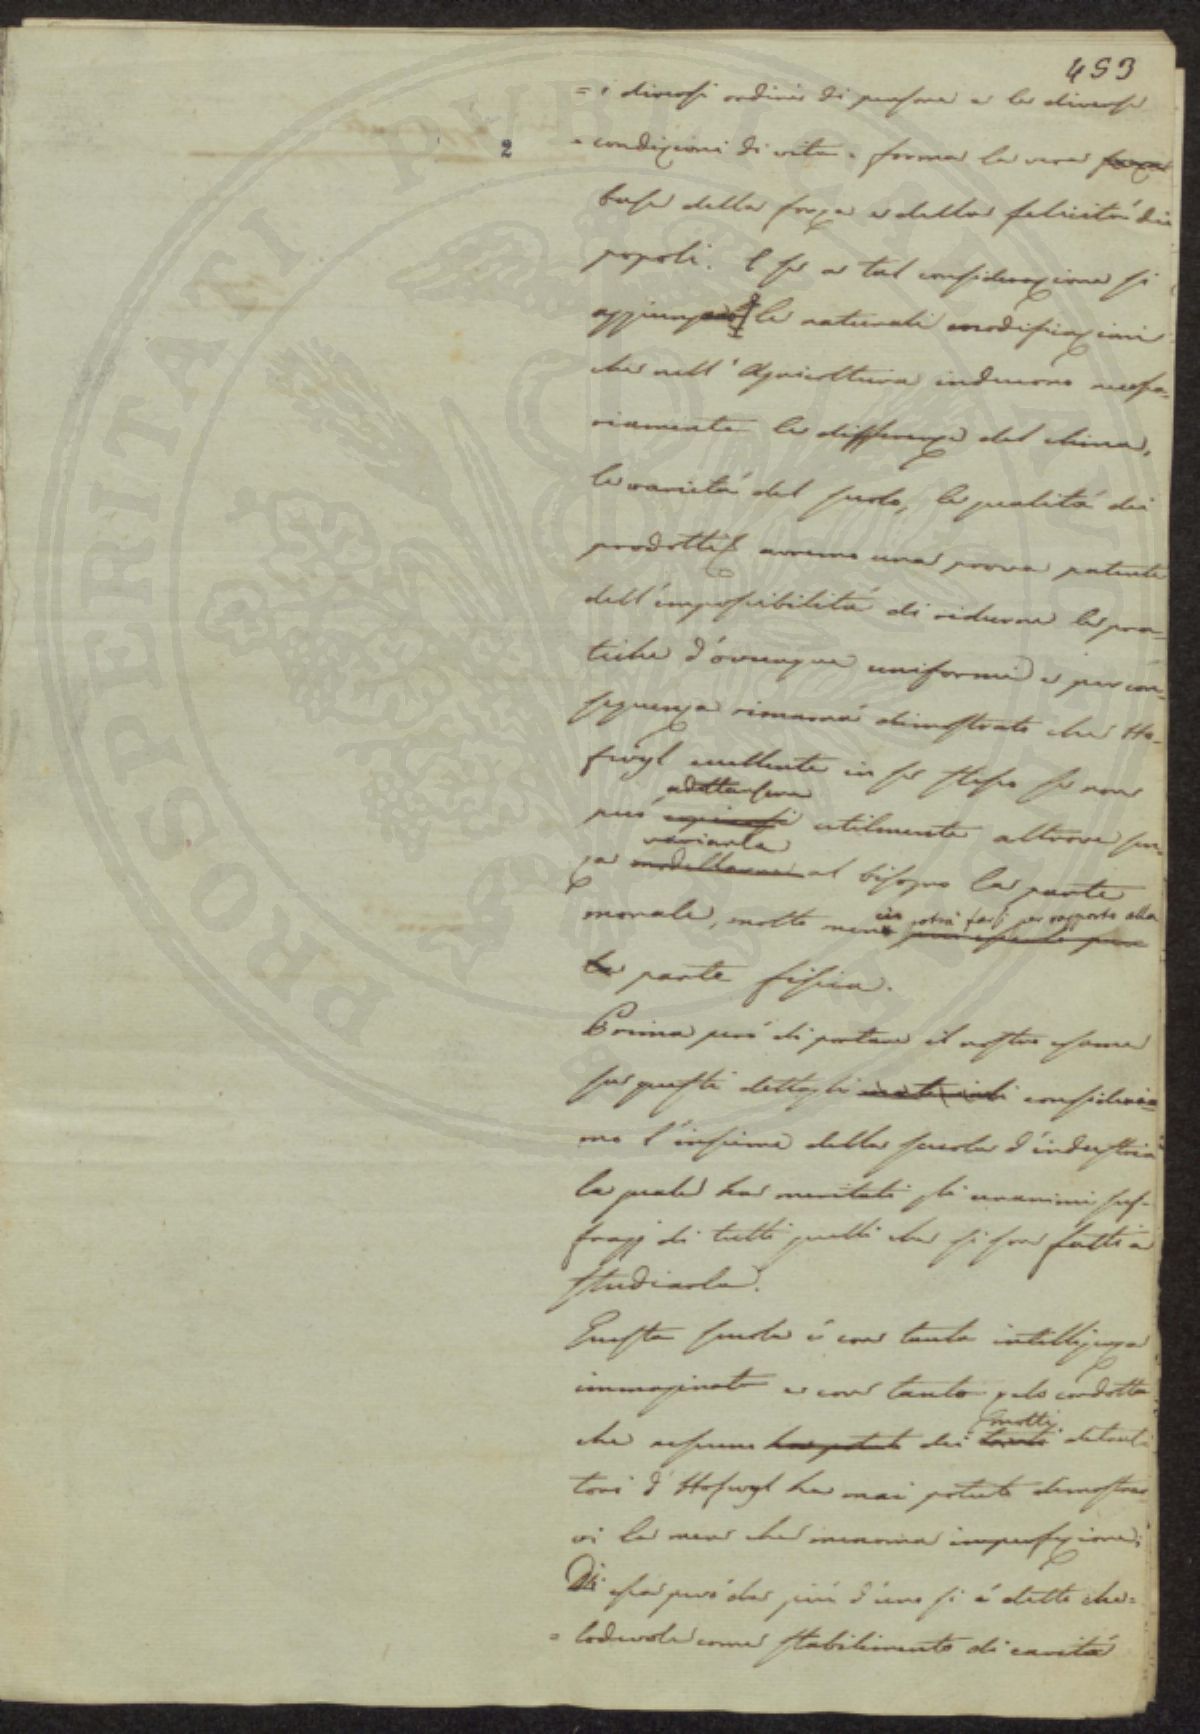 453
= i diversi ordini di persone e le diverse
2
= condizioni di vita = forma la vera forza
base della forza e della felicità dei
popoli. E se a tal considerazione si
aggiungano le naturali modificazioni
che nell'Agricoltura inducono necessa-
riamente le differenze del clima,
le varietà del suolo, le qualità dei
prodotti avremo una prova patente
dell'impossibilità di ridurne le pra-
tiche d'ovunque uniformi e per con-
seguenza rimarrà dimostrato che Ho-
fwyl eccellente in se stesso se non
adottarsene
può copiarsi utilmente altrove sen-
variarla
za modellarne al bisogno la parte
ciò potrà farsi per rapporto alla
morale, molto meno può
la parte fisica.
Prima però di portare il nostro esame
su questi dettagli materiali consideria-
mo l'insieme della scuola d'industria
la quale ha meritati gli unanimi suf-
fragj di tutti quelli che si son fatti a
studiarla.
Questa scuola è con tanta intelligenza
immaginata e con tanto zelo condotta
molti
che nessuno ha potuto dei tanti detrat-
tori d'Hofwyl ha mai potuto dimostrar-
vi la men che menoma imperfezione;
Di essa però da più d'uno si è detto che =
= lodevole come stabilimento di carità
PROSPERITATI PUBLICAE AUGENDAE